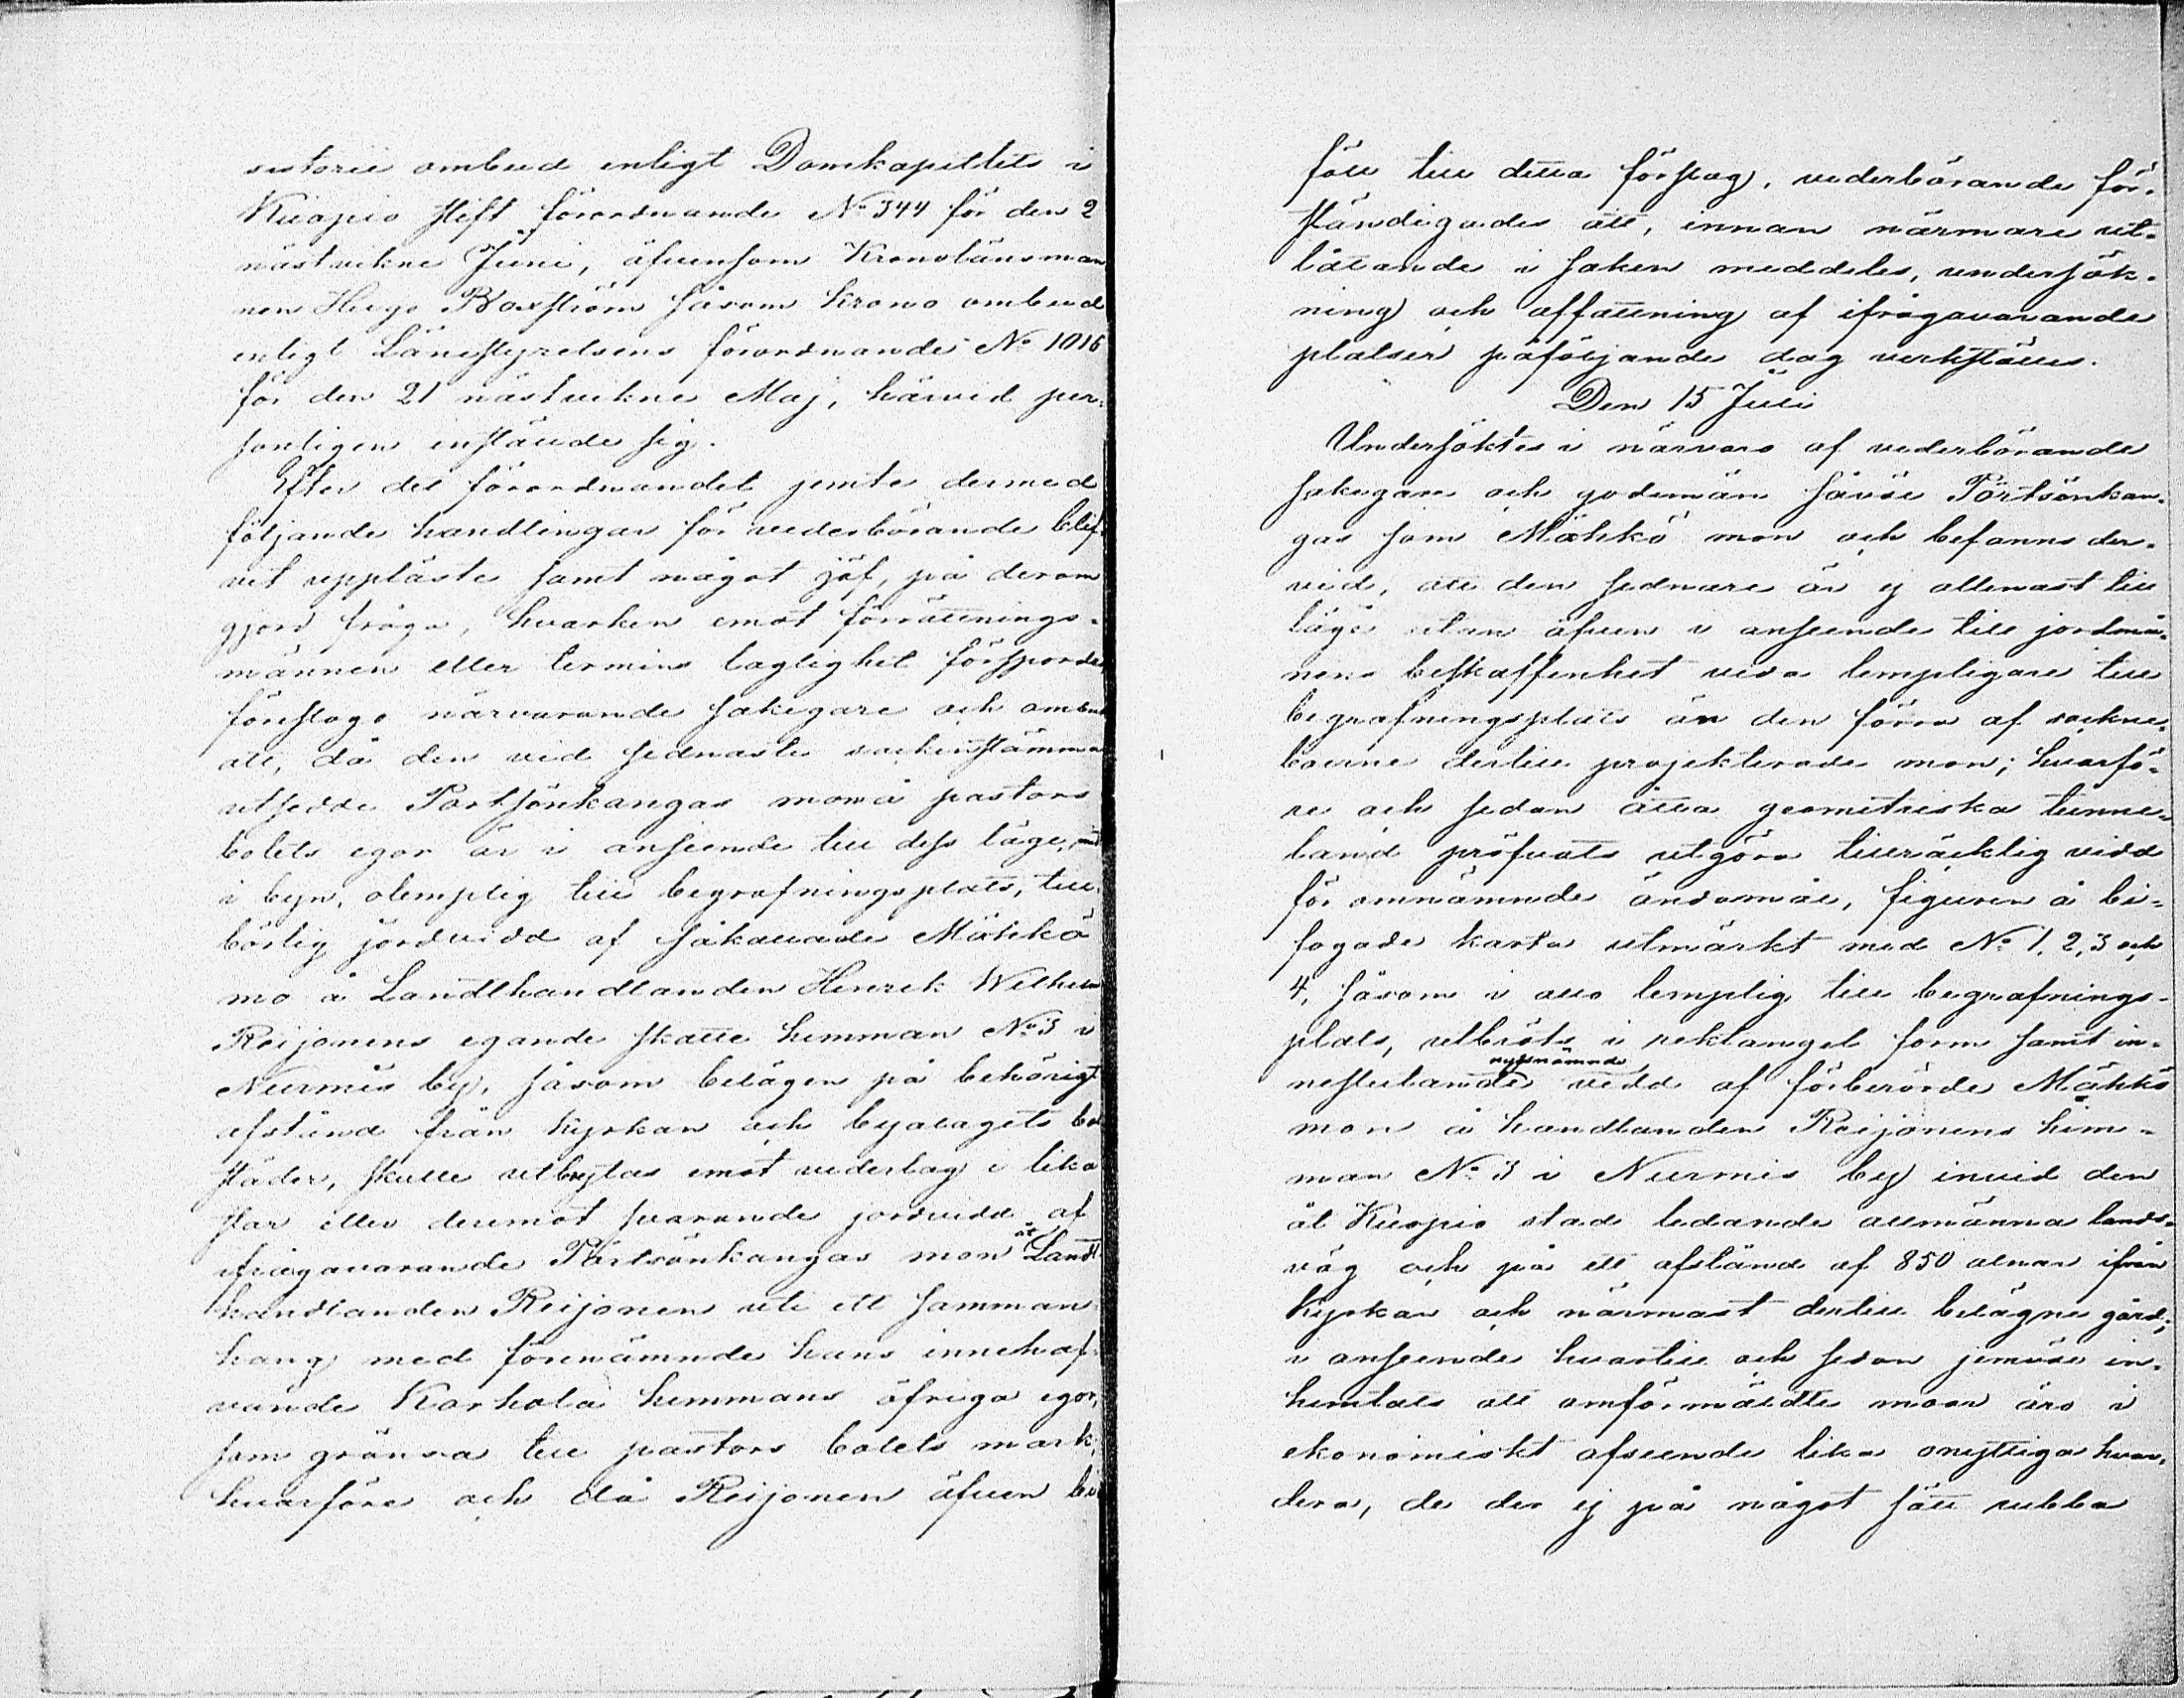 sistorii ombud enligt Domkapitlets i
Kuopio Stift förordnande No 344 för den 2
nästvikne Juni, äfvensom Kronolänsman
nen Hugo Boxström såsom krono ombud
enligt Länestyrelsens förordnande No 1016
för den 21 nästvikne Maj, härvid per-
sonligen inställde sig.
Efter det förordnandet jemte dermed
följande handlingar för vederbörande blif-
vit uppläste samt något jäf, på derom
gjord fråga, hvarken emot förrättnings-
männen eller termins laglighet försporde,
föreslogo närvarande sakegare och ombud
att, då den vid sednaste sockenstämma
utsedde Portsönkangas mon å pastors
bolets egor är i anseende till dess läge, midt
i byn, olemplig till begrafningsplats, till-
börlig jordvidd af såkallade Mähkö
mo å Landthandlanden Henrik Wilhelm
Reijonens egande skatte hemman No 3 i
Nurmis by, såsom belägen på behörigt
afstånd från kyrkan och byalagets bo
städer, skulle utbytas emot vederlag i lika
stor eller deremot svarande jordvidd af
ifrågavarande Portsönkangas mon åt Landt
handlanden Reijonen uti ett samman
hang med förenämnde hans innehaf-
vande Korhola hemmans öfriga egor,
som gränsa till pastors bolets mark,
hvarföre och då Reijonen äfven bi
föll till detta förslag, vederbörande för-
ständigades att, innan närmare ut-
låtande i saken meddeles, undersök-
ning och affattning af ifrågavarande
platser påföljande dag verkställes.
Den 15 Juli
Undersöktes i närvaro af vederbörande
sakegare och godemän såväl Portsönkan-
gas som Mähkö mon och befanns der-
vid, att den sednare är ej allenast till
läge utan äfven i anseende till jordmå-
nens beskaffenhet vida lempligare till
begrafningsplats än den förra af sockne-
boerne dertill projekterade mon; hvarfö-
re och sedan åtta geometriska tunne-
land pröfvats utgöra tillräcklig vidd
för omnämnde ändamål, figuren å bi-
fogade karta utmärkt med No 1, 2, 3 och
4, såsom i allo lemplig till begrafnings-
plats, utbröts i rektangel form samt in-
neslutande nyssnämnde vidd af förberörde Mähkö
mon å handlanden Reijonens hem-
man No 3 i Nurmis by invid den
åt Kuopio stad ledande allmänna lands-
väg och på ett afstånd af 850 alnar ifrån
kyrkan och närmast dertill belägne gård;
i anseende hvartill och sedan jemväl in-
hemtats att omförmäldte moar äro i
ekonomiskt afseende lika onyttiga hvar-
dera, de der ej på något sätt rubba